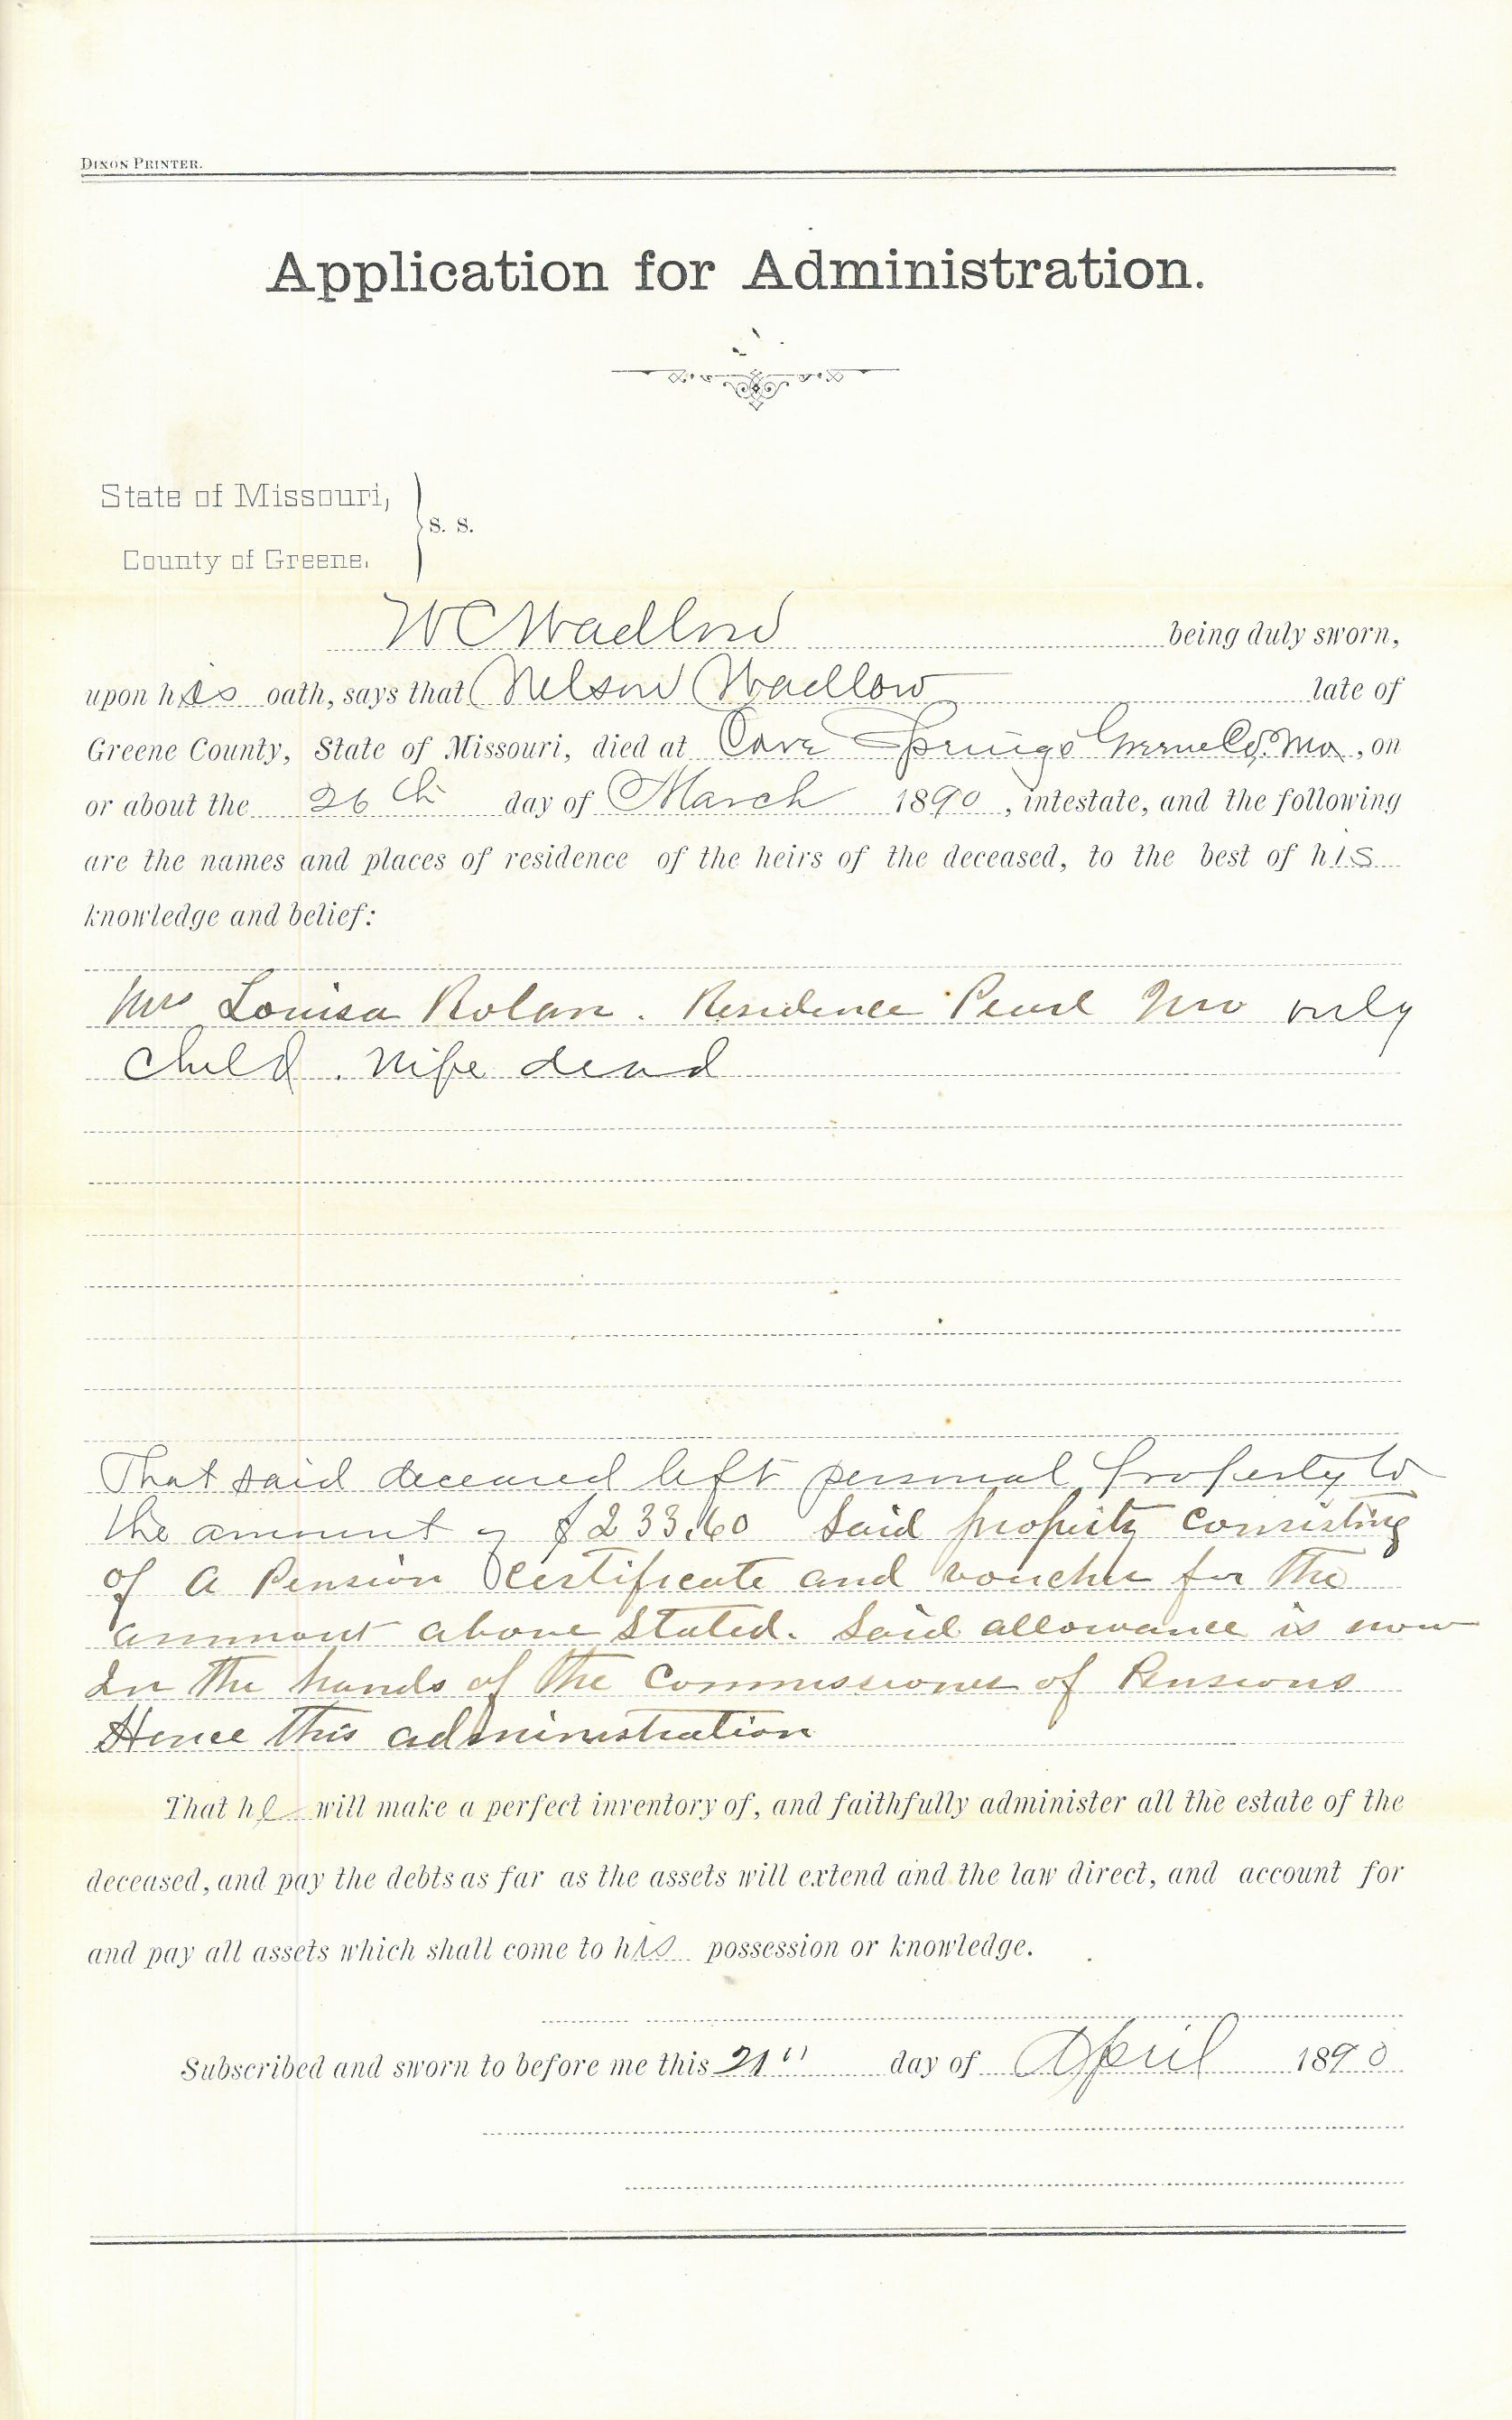 DIXON PRINTER.
Application for Administration.
State of Missouri,
S. S.
County of Greene.
W C Wadlow being duly sworn,
upon his oath, says that Nelson Wadlow late of
Greene County, State of Missouri, died at Cave Springs Greene Co. Mo, on
or about the 26th day of March 1890, intestate, and the following
are the names and places of residence of the heirs of the deceased, to the best of his
knowledge and belief:
Mrs Louisa Rolan. Residence Pearl Mo only
child. Wife dead
That said deceased left personal property to
the amount of $233.60 Said property consisting
of a Pension Certificate and voucher for the
ammount above Stated. Said allowance is now
In the hands of the Commissioner of Pensions
Hence this administration
That he will make a perfect inventory of, and faithfully administer all the estate of the
deceased, and pay the debts as far as the assets will extend and the law direct, and account for
and pay all assets which shall come to his possession or knowledge.
Subscribed and sworn to before me this 21" day of April 1890